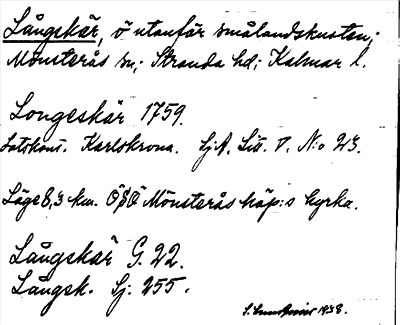 Långskär, ö utanför smålandskusten;
Mönsterås sn; Stranda hd; Kalmar l.
Longeskär 1759.
Lotskont. Karlskrona. Sj.A. Litt. D. N:o 23.
Läge 8,3 km. ÖSÖ Mönsterås köp:s kyrka.
Långskär G. 22.
Långsk. Sj. 255.
1938.